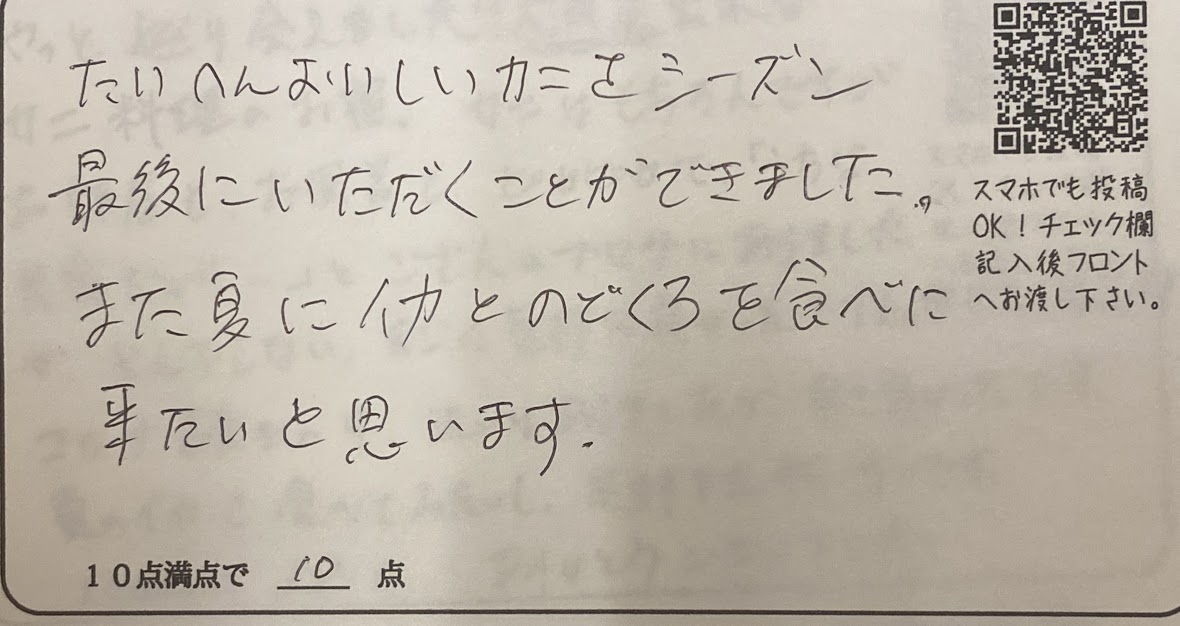 たいへんおいしいカニをシーズン
最後にいただくことができました。
また夏にイカとのどくろを食べに
来たいと思います.
スマホでも投稿
OK！チェック欄
記入後フロント
へお渡し下さい。
10点満点で 10 点